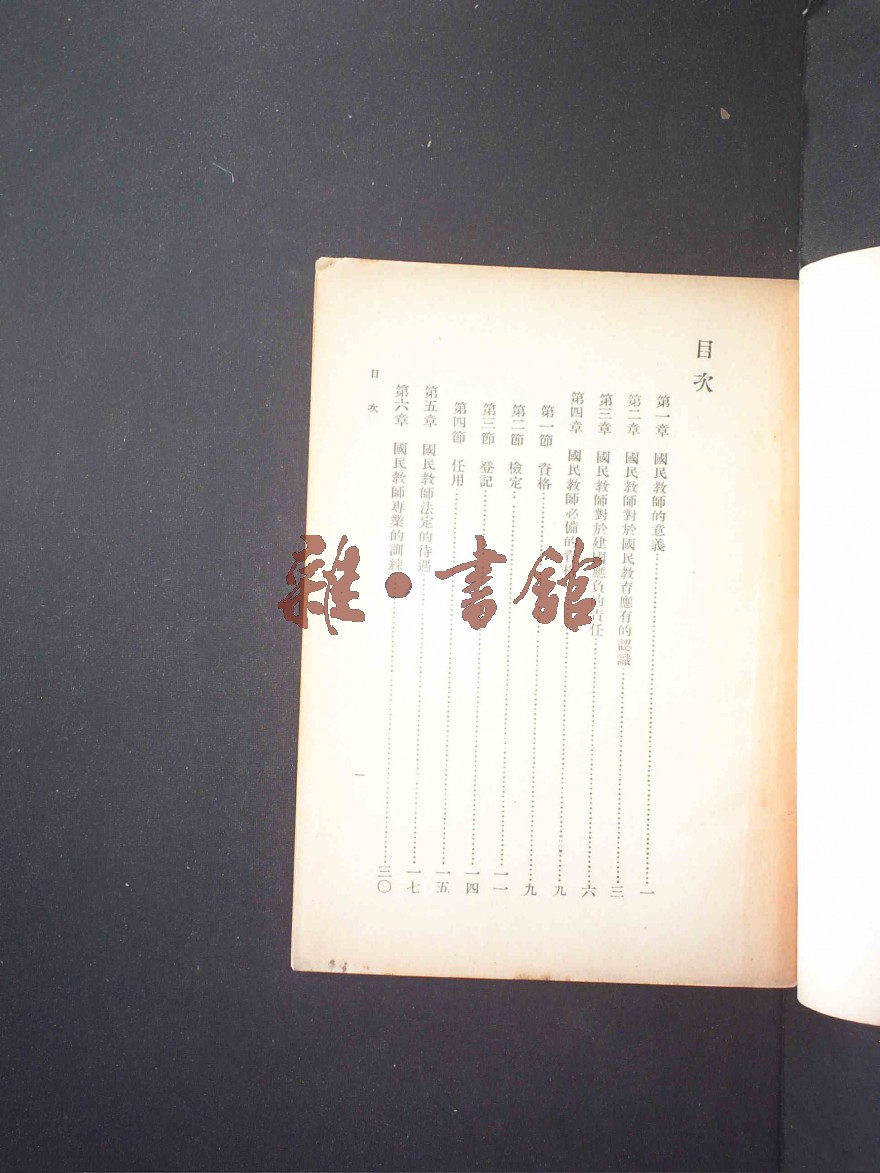 目次
第一章 國民教師的意義……一
第二章 國民教師對於國民教育應有的認識……三
第三章 國民教師對於建國應負的責任……六
第四章 國民教師必備的……九
第一節 資格……九
第二節 檢定……一一
第三節 登記……一四
第四節 任用……一五
第五章 國民教師法定的待遇……一七
第六章 國民教師專業的訓練……三〇
目次
一
雜·書館